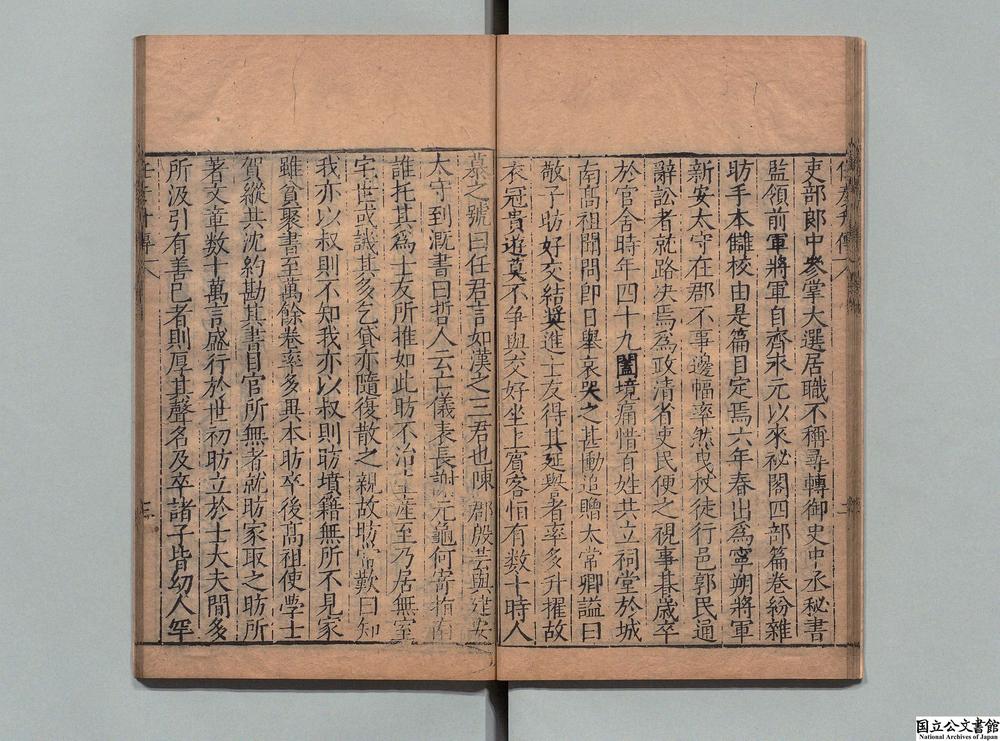 吏部郎中參掌大選居職不稱尋轉御史中丞秘書
監領前軍將軍自齊永元以來祕閣四部篇卷紛雜
昉手本讎校由是篇目定焉六年春出爲寧朔將軍
新安太守在郡不事邊幅率然曳杖徒行邑郭民通
辭訟者就路决焉爲政清省吏民便之視事朞歲卒
於官舍時年四十九闔境痛惜百姓共立祠堂於城
南髙祖聞問即日舉哀哭之甚慟追贈太常卿謚曰
敬子昉好交結奬進士友得其延譽者率多升擢故
衣冠貴遊莫不爭與交好坐上賓客恒有數十時人
慕之號曰任君言如漢之三君也陳郡殷芸與建安
太守到溉書曰哲人云亡儀表長謝元龜何寄指南
誰托其爲士友所推如此昉不治生產至乃居無室
宅世或譏其多乞貸亦隨復散之親故昉常歎曰知
我亦以叔則不知我亦以叔則昉墳籍無所不見家
雖貧聚書至萬餘卷率多異本昉卒後髙祖使學士
賀縱共沈約勘其書目官所無者就昉家取之昉所
著文章数十萬言盛行於世初昉立於士大夫間多
所汲引有善已者則厚其聲名及卒諸子皆幼人罕
国立公文書館
National Archives of Japan